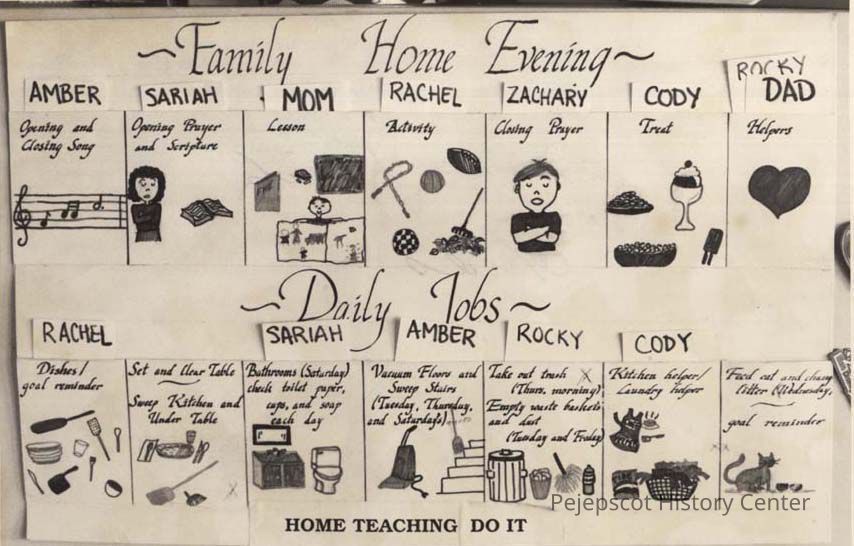 ~Family Home Evening~
AMBER
SARIAH
MOM
RACHEL
ZACHARY
CODY
ROCKY
DAD
Opening and
Closing Song
Opening Prayer
and Scripture
Lesson
Activity
Closing Prayer
Treat
Helpers
~Daily Jobs~
RACHEL
SARIAH
AMBER
ROCKY
CODY
Dishes/
goal reminder
Set and Clear Table
Sweep Kitchen and
Under Table
Bathrooms (Saturday)
check toilet paper,
cups, and soap
each day
Vacuum Floors and
Sweep Stairs
(Tuesday, Thursday,
and Saturdays)
Take out trash
(Thurs. morning)
Empty waste baskets
and dust
(Tuesday and Friday)
Kitchen helper/
Laundry helper
Feed cat and change
litter (Wednesday,
goal reminder
Pejepscot History Center
HOME TEACHING DO IT